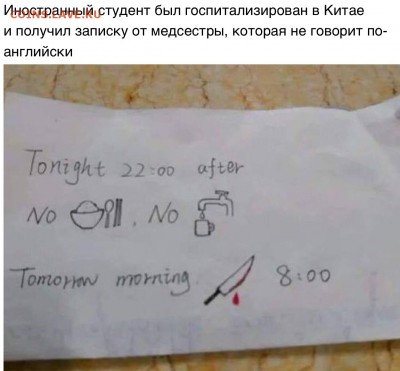 Иностранный студент был госпитализирован в Китае
и получил записку от медсестры, которая не говорит по-
английски
Tonight 22:00 after
No , No
Tomorrow morning 8:00